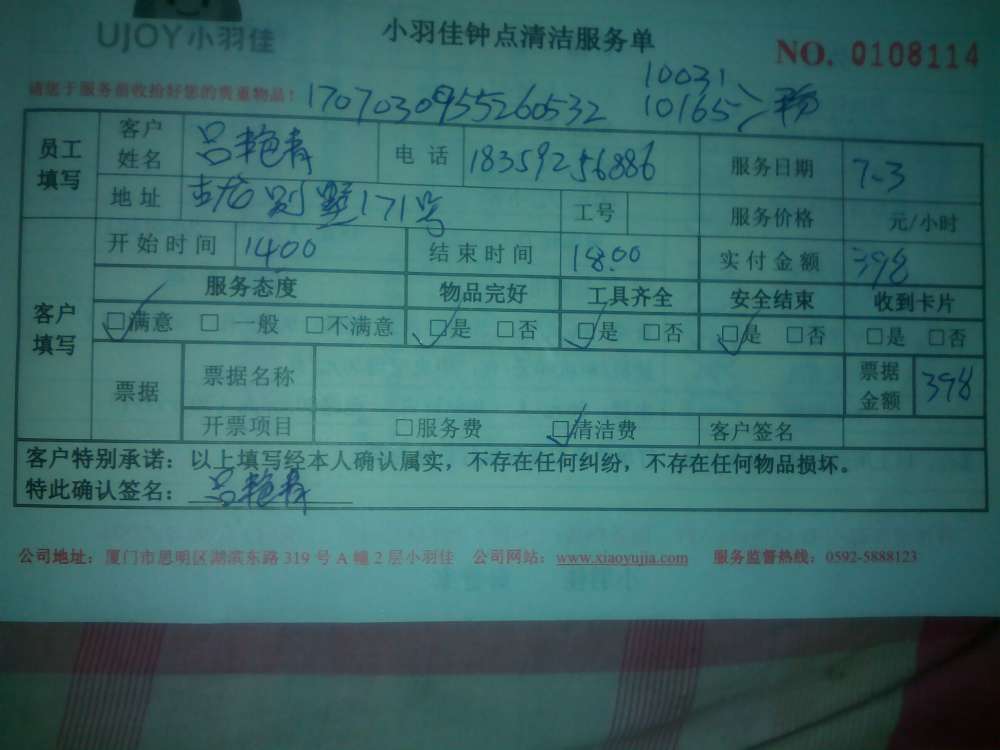 UJOY小羽佳
小羽佳钟点清洁服务单
NO. 0108114
请您于服务前收拾好您的贵重物品！ 1707030955260532
10031
10165
员工填写 客户姓名 吕艳青 电话 18359256886 服务日期 7-3
地址 别墅171号 工号 服务价格 元/小时
客户填写 开始时间 1400 结束时间 18.00 实付金额 398
服务态度 物品完好 工具齐全 安全结束 收到卡片
□满意 □一般 □不满意 □是 □否 □是 □否 □是 □否 □是 □否
票据 票据名称 票据金额 398
开票项目 □服务费 □清洁费 客户签名
客户特别承诺：以上填写经本人确认属实，不存在任何纠纷，不存在任何物品损坏。
特此确认签名：吕艳青
公司地址：厦门市思明区湖滨东路 319 号 A 幢 2 层小羽佳 公司网站：www.xiaoyujia.com 服务监督热线：0592-5888123